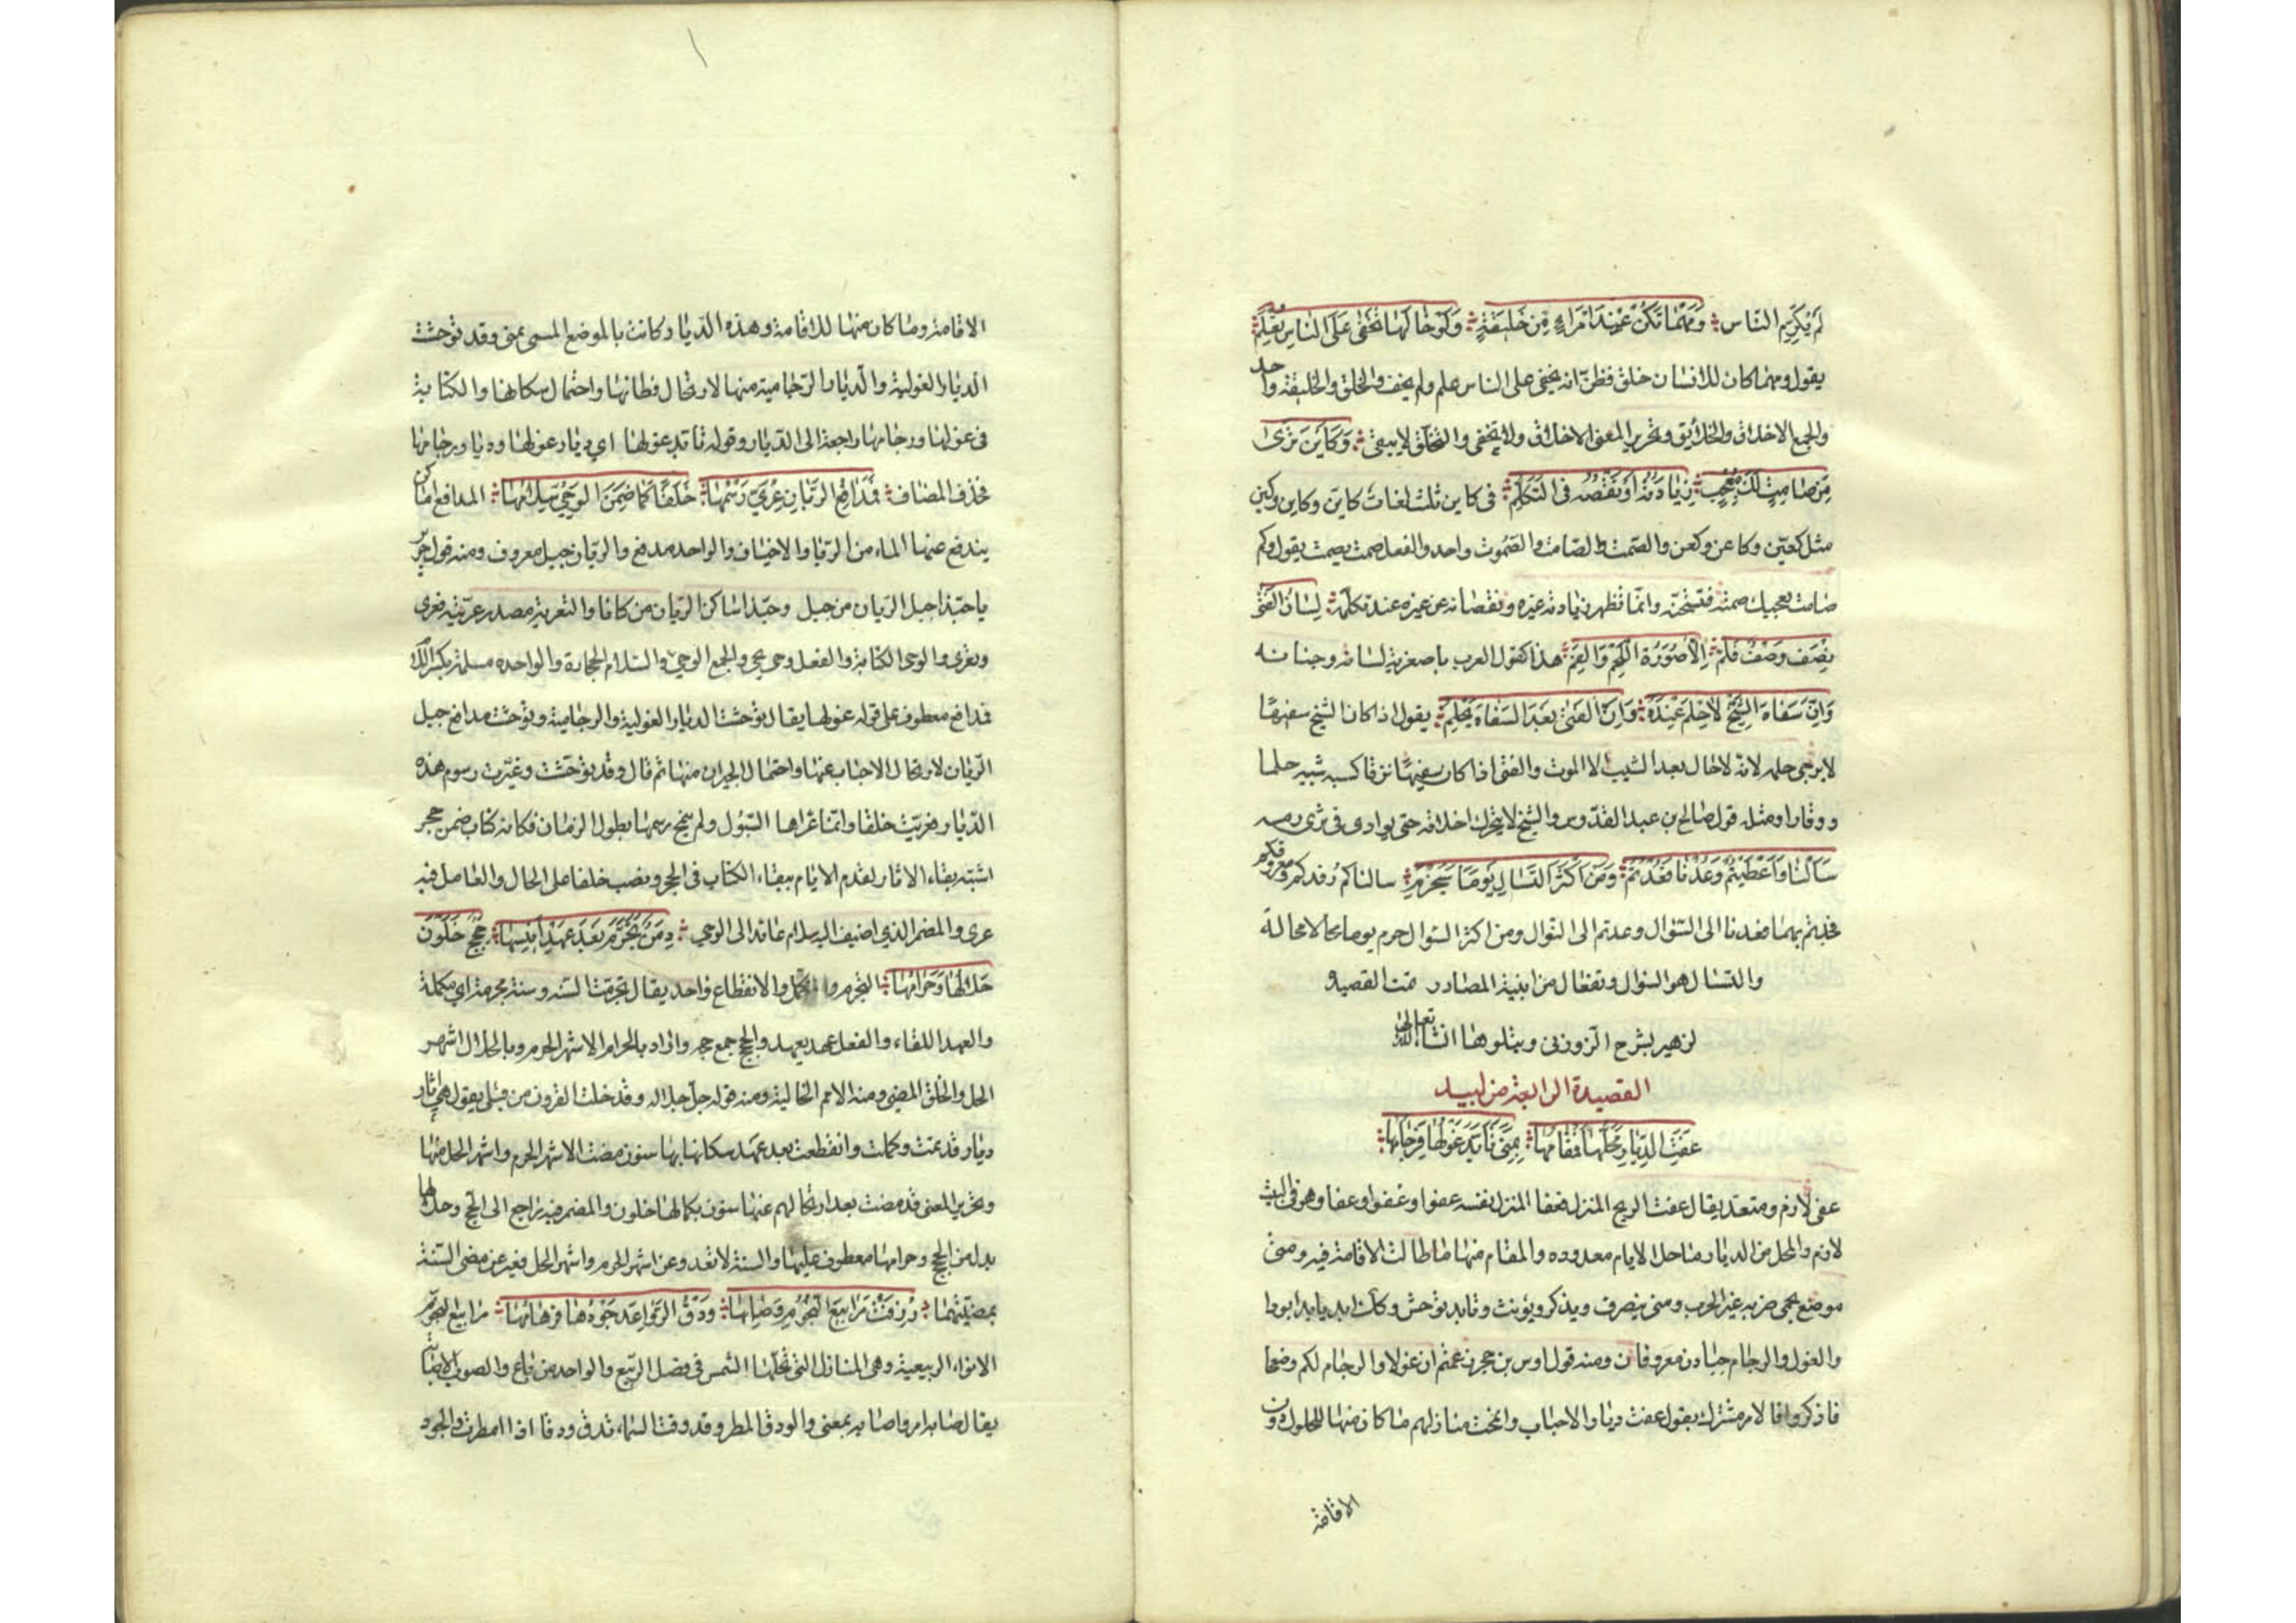 لم يكرم الناس ومهما تكن عند امرئ من خليقة ولو خالها تخفى على الناس تعلم
يقول ومهما كان للانسان خلق فظن انه يخفى على الناس علم ولم يخف والخلق والخليقة واحد
والجمع الاخلاق والخلائق وتحرير المعنى الاخلاق ولا تخفى والتخلق لا يبقى وكاين ترى
من صامت لك معجب زيادته او نقصه فى التكلم فى كاين ثلث لغات كاين وكاين وكئن
مثل كعين وكاعن وكعن والصمت والصامت والصموت واحد والفعل صمت يصمت يقول وكم
صامت يعجبك صمته فتستحسنه وانما تظهر زيادته غيره ونقصانه عن غيره عند تكلمه لسان الفتى
نصف ونصف فؤاده الا صورة اللحم والدم هذا كقول العرب باصغريه لسانه وجنانه
وان سفاه الشيخ لا حلم عنده وان الفتى بعد السفاهة يحلم يقول اذا كان الشيخ سفيها
لا يرجى حلمه لانه لا حال بعد الشيب الا الموت والفتى اذا كان سفيها نزقا كسبه شيبه حلما
ووقارا ومثله قول صالح بن عبد القدوس والشيخ لا يترك اخلاقه حتى يوارى فى ثرى رمسه
سالنا واعطيتم وعدنا فعدتم ومن اكثر التسال يوما سيحرم سالناكم رفدكم ومعروفكم
فجدتم بهما فعدنا الى السؤال وعدتم الى النوال ومن اكثر السوال حرم يوما لا محالة
والتسال هو السؤال وتفعال من ابنية المصادر تمت القصيده
لزهير بشرح الزوزنى ويتلوها انشا الله تعالى
القصيدة الرابعة من لبيد
عفت الديار محلها فمقامها بمنى تابد غولها فرجامها
عفى لازم ومتعد يقال عفت الريح المنزل فعفا المنزل نفسه عفوا وعفوا وعفا وهو فى البيت
لازم والمحل من الديار ما حل لايام معدوده والمقام منها ما طالت الاقامة فيه ومنى
موضع بحمى ضريه غير الحرب ومنى ينصرف ويذكر ويؤنث وتابد توحش وكذلك ابد يابد ابودا
والغول والرجام جبلان معروفان ومنه قول اوس بن حجر زعمتم ان غولا والرجام لكم ومنعجا
فاذكروا فالامر مشترك يقول عفت ديار الاحباب وانمحت منازلهم ما كان منها للحلول دون
الاقامة
الاقامة وما كان منها للاقامة وهذه الديار كانت بالموضع المسمى بمنى وقد توحشت
الديار الغولية والديار الرجامية منها لارتحال قطانها واحتمال سكانها والكناية
فى غولها ورجامها راجعة الى الديار وقوله تابد غولها اى ديار غولها وديار رجامها
فحذف المضاف فمدافع الريان عرى رسمها خلقا كما ضمن الوحى سلامها المدافع اماكن
يندفع عنها الماء من الربا والاخياف والواحد مدفع والريان جبل معروف ومنه قول جرير
يا حبذا جبل الريان من جبل وحبذا ساكن الريان من كانا والتعرية مصدر عريته فعرى
وتعرى والوحى الكتابة والفعل وحى يحى والجمع الوحى والسلام الحجارة والواحده سلمة بكسر اللام
فمدافع معطوف على قوله غولها يقال توحشت الديار الغولية والرجامية وتوحشت مدافع جبل
الريان لارتحال الاحباب عنها واحتمال الجيران منها ثم قال وقد توحشت وغيرت رسوم هذه
الديار فعريت خلقا وانما عراها السيول ولم ينمح رسمها بطول الزمان فكانه كتاب ضمن حجر
اشبه بقاء الاثار لقدم الايام ببقاء الكتاب فى الحجر ونصب خلقا على الحال والعامل فيه
عرى والمضمر الذى اضيف اليه سلام عائد الى الوحى دمن تجرم بعد عهد انيسها حجج خلون
حلالها وحرامها التجرم والتكمل والانقطاع واحد يقال تجرمت السنه وسنة مجرمة اى مكملة
والعهد اللقاء والفعل عهد يعهد والحجج جمع حجه واراد بالحرام الاشهر الحرم وبالحلال اشهر
الحل والخلو المضى ومنه الامم الخالية ومنه قوله جل جلاله وقد خلت القرون من قبلى يقول هى اثار
ديار قد تمت وكملت وانقطعت بعد عهد سكانها بها سنون مضت الاشهر الحرم واشهر الحل منها
وتحرير المعنى قد مضت بعد ارتحالهم عنها سنون بكمالها خلون والمضمر فيه راجع الى الحجج وحلالها
بدل من الحجج وحرامها معطوف عليها والسنة لا تعدو عن اشهر الحرم واشهر الحل فعبر عن مضى السنة
بمضيتهما رزقت مرابيع النجوم وصابها ودق الرواعد جودها فرهامها مرابيع النجوم
الانواء الربيعية وهى المنازل التى تحلها الشمس فى فصل الربيع والواحد مرباع والصوب الاصابة
يقال صابه امر واصابه بمعنى والودق المطر وقد ودقت السماء تدق ودقا اذا امطرت والجود